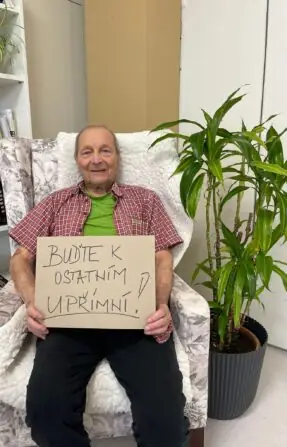 BUĎTE K
OSTATNÍM
UPŘÍMNÍ!